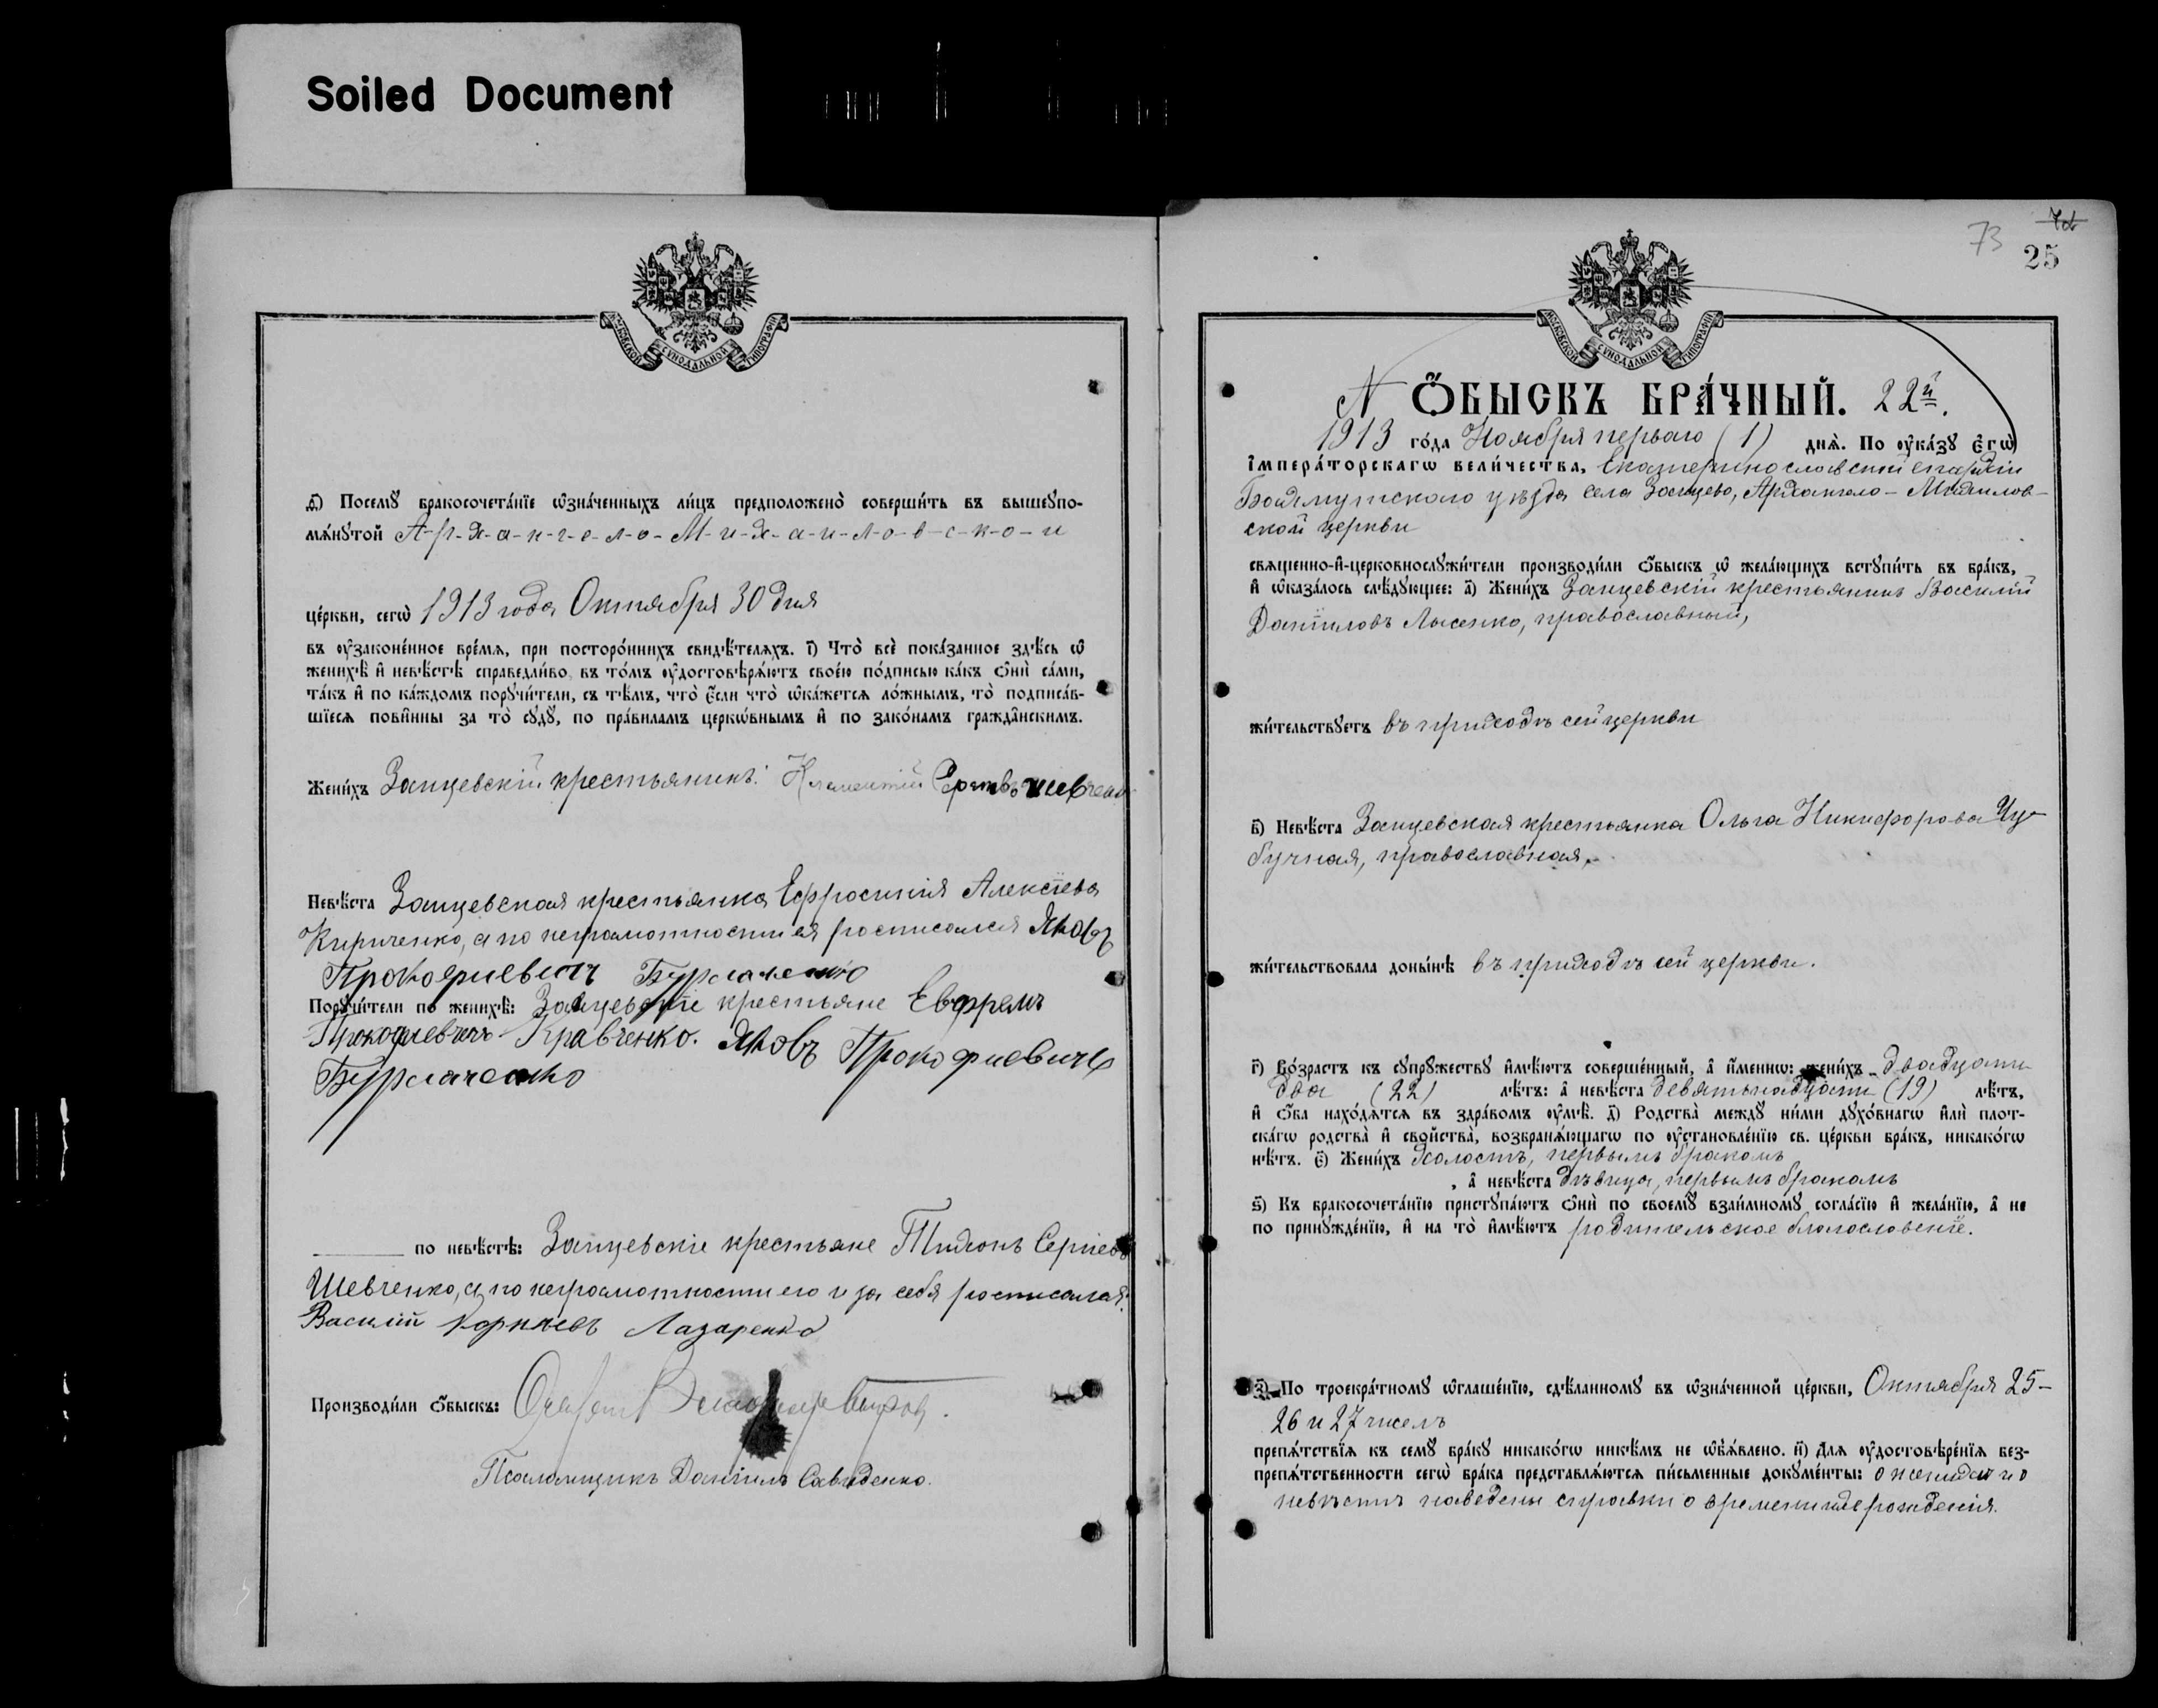 Soiled Document
МОСКОВСКОЙ СѴНОДАЛЬНОЙ ТИПОГРАФІИ
д҃) Посемꙋ̀ бракосочета́нїе ѡ҆зна́ченныхъ ли́цъ предположено̀ соверши́ть въ вышеꙋпо-
мѧ́нꙋтой А-р-х-а-н-г-е-л-о-М-и-х-а-и-л-о-в-с-к-о-й
це́ркви, сегѡ̀ 1913 года Октября 30 дня
въ ᲂу҆зако́ненное вре́мѧ, при посторо́ннихъ свидѣ́телѧхъ. і҃) Что̀ всѐ пока́занное здѣ́сь ѡ҆
женихѣ̀ и҆ невѣ́стѣ справедли́во, въ то́мъ ᲂу҆достовѣрѧ́ютъ свое́ю по́дписью ка́къ ѻ҆нѝ са́ми,
та́къ и҆ по ка́ждомъ порꙋчи́тели, съ тѣ́мъ, что̀ є҆́сли что̀ ѡ҆ка́жетсѧ ло́жнымъ, то̀ подписа́в-
шїесѧ пови́нны за то̀ сꙋдꙋ̀, по пра́виламъ церкѡ́внымъ и҆ по зако́намъ гражда̑нскимъ.
Жени́хъ Зайцевскій крестьянинъ: Климентій Шевченко
Невѣ́ста Зайцевская крестьянка Ефросинія Алексіева
Кириченко, а по неграмотности ея росписался Яковъ
Прокофиевичъ Бурлаченко
Порꙋчи́тели по женихѣ̀: Зайцевскіе крестьяне Евфремъ
Прокофиевичъ Кравченко. Яковъ Прокофиевичъ
Бурлаченко
по невѣ́стѣ: Зайцевскіе крестьяне Тихонъ Сергіевъ
Шевченко, а по неграмотности его и за себя росписался:
Василій Корнѣевъ Лазаренко
Производи́ли ѻ҆́быскъ:
Псаломщикъ Даніилъ Савиденко.
73
25
МОСКОВСКОЙ СѴНОДАЛЬНОЙ ТИПОГРАФІИ
N ѺБЫСКЪ БРА́ЧНЫЙ. 22й.
1913 го́да Ноября перваго (1) днѧ̀. По ᲂу҆ка́зꙋ Є҆гѡ̀
І҆мпера́торскагѡ вели́чества, Екатеринославской епархіи
Бахмутского уѣзда села Зайцево, Архангело-Михайлов-
ской церкви
свѧще́нно-и҆-церковнослꙋжи́тели производи́ли ѻ҆́быскъ ѡ҆ жела́ющихъ встꙋпи́ть въ бра́къ,
и҆ ѡ҆каза́лось слѣ́дꙋющее: а҃) Жени́хъ Зайцевскій крестьянинъ Василій
Даніиловъ Лысенко, православный,
жи́тельствꙋетъ въ приходѣ сей церкви
в҃) Невѣ́ста Зайцевская крестьянка Ольга Никифорова Чу-
бучная, православная,
жи́тельствовала доны́нѣ въ приходѣ сей церкви.
г҃) Во́зрастъ къ сꙋпрꙋ́жествꙋ и҆мѣ́ютъ соверше́нный, а҆ и҆́меннѡ: жени́хъ двадцати
два (22) лѣ́тъ: а҆ невѣ́ста девятьнадцати (19) лѣ́тъ,
и҆ ѻ҆́ба нахо́дѧтсѧ въ здра́вомъ ᲂу҆мѣ̀. д҃) Родства̀ междꙋ̀ ни́ми дꙋхо́внагѡ и҆лѝ плот-
ска́гѡ родства̀ и҆ сво́йства, возбранѧ́ющагѡ по ᲂу҆становле́нїю св. це́ркви бра́къ, никако́гѡ
нѣ́тъ. є҃) Жени́хъ холостъ, первымъ бракомъ
, а҆ невѣ́ста дѣвица, первымъ бракомъ
ѕ҃) Къ бракосочета́нїю пристꙋпа́ютъ ѻ҆нѝ по своемꙋ̀ взаи́мномꙋ согла́сїю и҆ жела́нїю, а҆ не
по принꙋжде́нїю, и҆ на то̀ и҆мѣ́ютъ родительское благословеніе.
з҃) По троекра́тномꙋ ѡ҆глаше́нїю, сдѣ́ланномꙋ въ ѡ҆зна́ченной це́ркви, Октября 25-
26 и 27 чиселъ
препѧ́тствїѧ къ семꙋ̀ бра́кꙋ никако́гѡ никѣ́мъ не ѡ҆б̾ѧ́влено. и҃) Для ᲂу҆достовѣре́нїѧ без-
препѧ́тственности сегѡ̀ бра́ка представлѧ́ютсѧ пи́сьменные докꙋме́нты: о женихѣ и о
невѣстѣ наведены справки о времени ихъ рожденія.